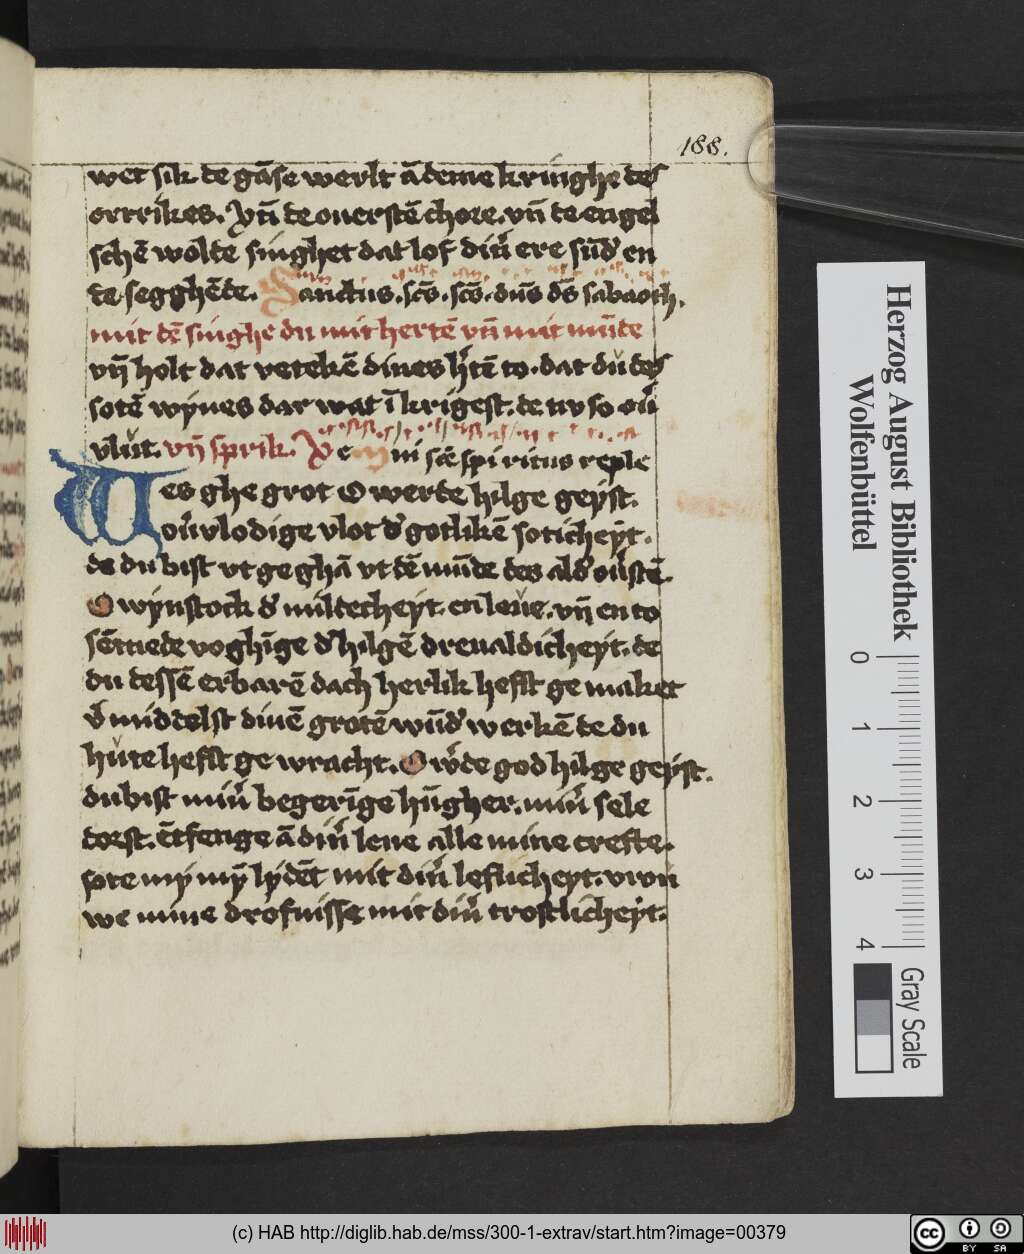 188.
wet sik de gāse werlt ā deme kringhe des
ertrikes. Vn̄ de ouerstē chore. vn̄ de engel
schē wolde singhet dat lof dinͬ ere sūdͬ en
de segghēde. Sanctus. scs̄. scs̄. dn̄s ds̄ sabaoth.
mit dē singhe du mit hertē vn̄ mit mūde
vn̄ holt dat vetekē dines hͬtē to. dat du des
sotē wynes dar wat ī krigest. de nv so ouͬ
vlut. vn̄ sprik. Veni scē spiritus reple
Wes ghe grot O werde hilge geyst.
ouͬvlodige vlot dͬ gotlikē soticheyt.
de du bist vt ge ghā vt dē mūde des aldͬ ouͬstē.
O wynstock dͬ mildecheyt. en leue. vn̄ en to
sēmede voghīge dͬ hilgē dreualdicheyt. de
du dessē erbarē dach herlik hefst ge maket
vͬmiddelst dinē grotē wūdͬ werkē de du
hute hefst ge wracht. O wͬde god hilge geyst.
du bist minͬ begerīge hūgher. minͬ sele
dorst. Ētfenge ā dinͬ leue alle mine crefte.
sote my my lydēt mit dinͬ leflicheyt. vorvī
we mine drofnisse mit dinͬ trostlicheyt.
Herzog August Bibliothek
Wolfenbüttel
0 1 2 3 4
Gray Scale
(c) HAB http://diglib.hab.de/mss/300-1-extrav/start.htm?image=00379
cc BY SA